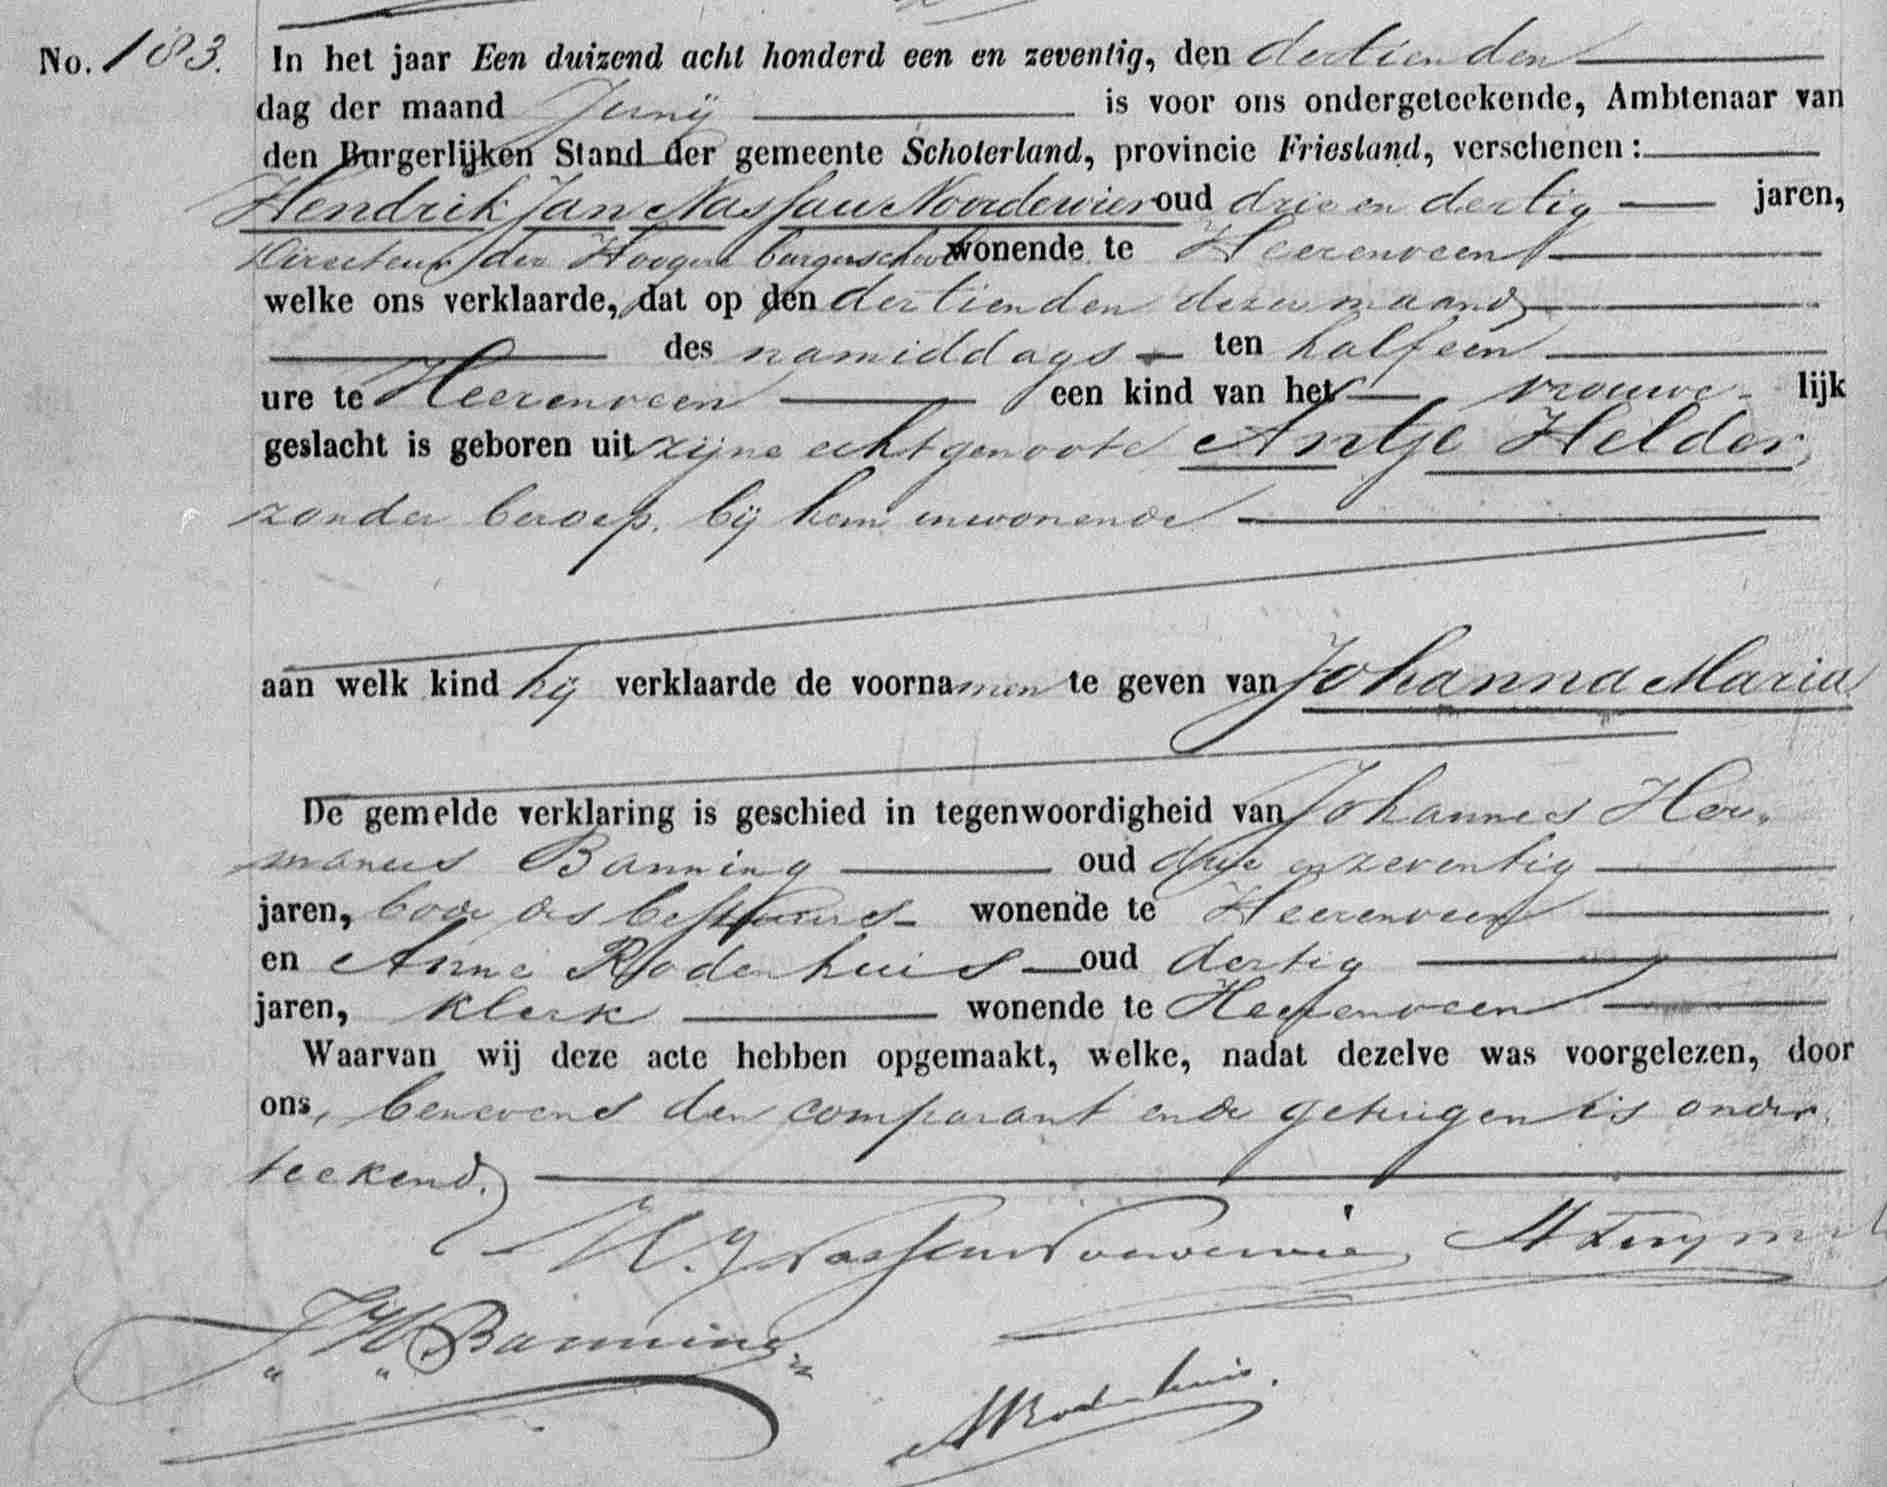 No. 183. In het jaar Een duizend acht honderd een en zeventig, den dertienden
dag der maand Junij is voor ons ondergeteekende, Ambtenaar van
den Burgerlijken Stand der gemeente Schoterland, provincie Friesland, verschenen:
Hendrik Jan Nassau Noordewier oud drie en dertig jaren,
Directeur der Hoogere burgerschool wonende te Heerenveen
welke ons verklaarde, dat op den dertienden dezer maand
des namiddags ten half een
ure te Heerenveen een kind van het vrouwe- lijk
geslacht is geboren uit zijne echtgenoote Antje Helder,
zonder beroep, bij hem inwonende
aan welk kind hij verklaarde de voornamen te geven van Johanna Maria
De gemelde verklaring is geschied in tegenwoordigheid van Johannes Her-
manus Banning oud drie en zeventig
jaren, bode des bestuurs wonende te Heerenveen
en Anne Rodenhuis oud dertig
jaren, klerk wonende te Heerenveen
Waarvan wij deze acte hebben opgemaakt, welke, nadat dezelve was voorgelezen, door
ons, benevens den comparant en de getuigen is onder-
teekend.
H. J. Nassau Noordewier
J. H. Banning
A Rodenhuis.